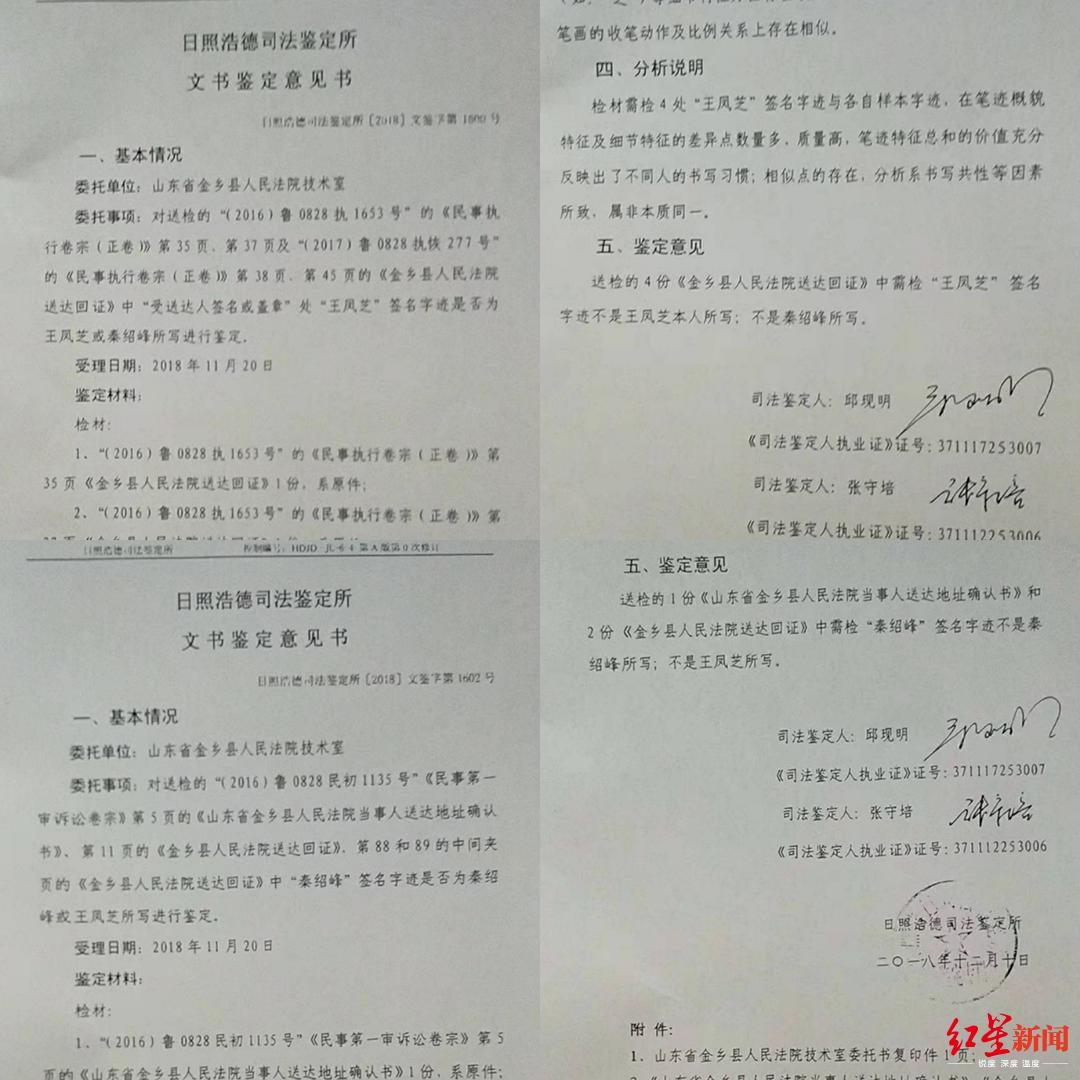 日照浩德司法鉴定所
文书鉴定意见书
日照浩德司法鉴定所[2018]文鉴字第1600号
一、基本情况
委托单位：山东省金乡县人民法院技术室
委托事项：对送检的“(2016)鲁0828执1653号”的《民事执
行卷宗(正卷)》第35页、第37页及“(2017)鲁0828执恢277号”
的《民事执行卷宗(正卷)》第38页、第45页的《金乡县人民法院
送达回证》中“受送达人签名或盖章”处“王凤芝”签名字迹是否为
王凤芝或秦绍峰所写进行鉴定。
受理日期：2018年11月20日
鉴定材料：
检材：
1、“(2016)鲁0828执1653号”的《民事执行卷宗(正卷)》第
35页《金乡县人民法院送达回证》1份，系原件；
2、“(2016)鲁0828执1653号”的《民事执行卷宗(正卷)》第
笔画的收笔动作及比例关系上存在相似。
四、分析说明
检材需检4处“王凤芝”签名字迹与各自样本字迹，在笔迹概貌
特征及细节特征的差异点数量多，质量高，笔迹特征总和的价值充分
反映出了不同人的书写习惯；相似点的存在，分析系书写共性等因素
所致，属非本质同一。
五、鉴定意见
送检的4份《金乡县人民法院送达回证》中需检“王凤芝”签名
字迹不是王凤芝本人所写；不是秦绍峰所写。
司法鉴定人：邱现明
《司法鉴定人执业证》证号：371117253007
司法鉴定人：张守培
《司法鉴定人执业证》证号：371112253006
日照浩德司法鉴定所 控制编号：HDJD-JL-6-4 第A版第0次修订
日照浩德司法鉴定所
文书鉴定意见书
日照浩德司法鉴定所[2018]文鉴字第1602号
一、基本情况
委托单位：山东省金乡县人民法院技术室
委托事项：对送检的“(2016)鲁0828民初1135号”《民事第一
审诉讼卷宗》第5页的《山东省金乡县人民法院当事人送达地址确认
书》、第11页的《金乡县人民法院送达回证》、第88和89的中间夹
页的《金乡县人民法院送达回证》中“秦绍峰”签名字迹是否为秦绍
峰或王凤芝所写进行鉴定。
受理日期：2018年11月20日
鉴定材料：
检材：
1、“(2016)鲁0828民初1135号”《民事第一审诉讼卷宗》第5
页的《山东省金乡县人民法院当事人送达地址确认书》1份，系原件；
五、鉴定意见
送检的1份《山东省金乡县人民法院当事人送达地址确认书》和
2份《金乡县人民法院送达回证》中需检“秦绍峰”签名字迹不是秦
绍峰所写；不是王凤芝所写。
司法鉴定人：邱现明
《司法鉴定人执业证》证号：371117253007
司法鉴定人：张守培
《司法鉴定人执业证》证号：371112253006
日照浩德司法鉴定所
二〇一八年十二月十日
附件：
1、山东省金乡县人民法院技术室委托书复印件1页；
红星新闻
锐度 深度 温度